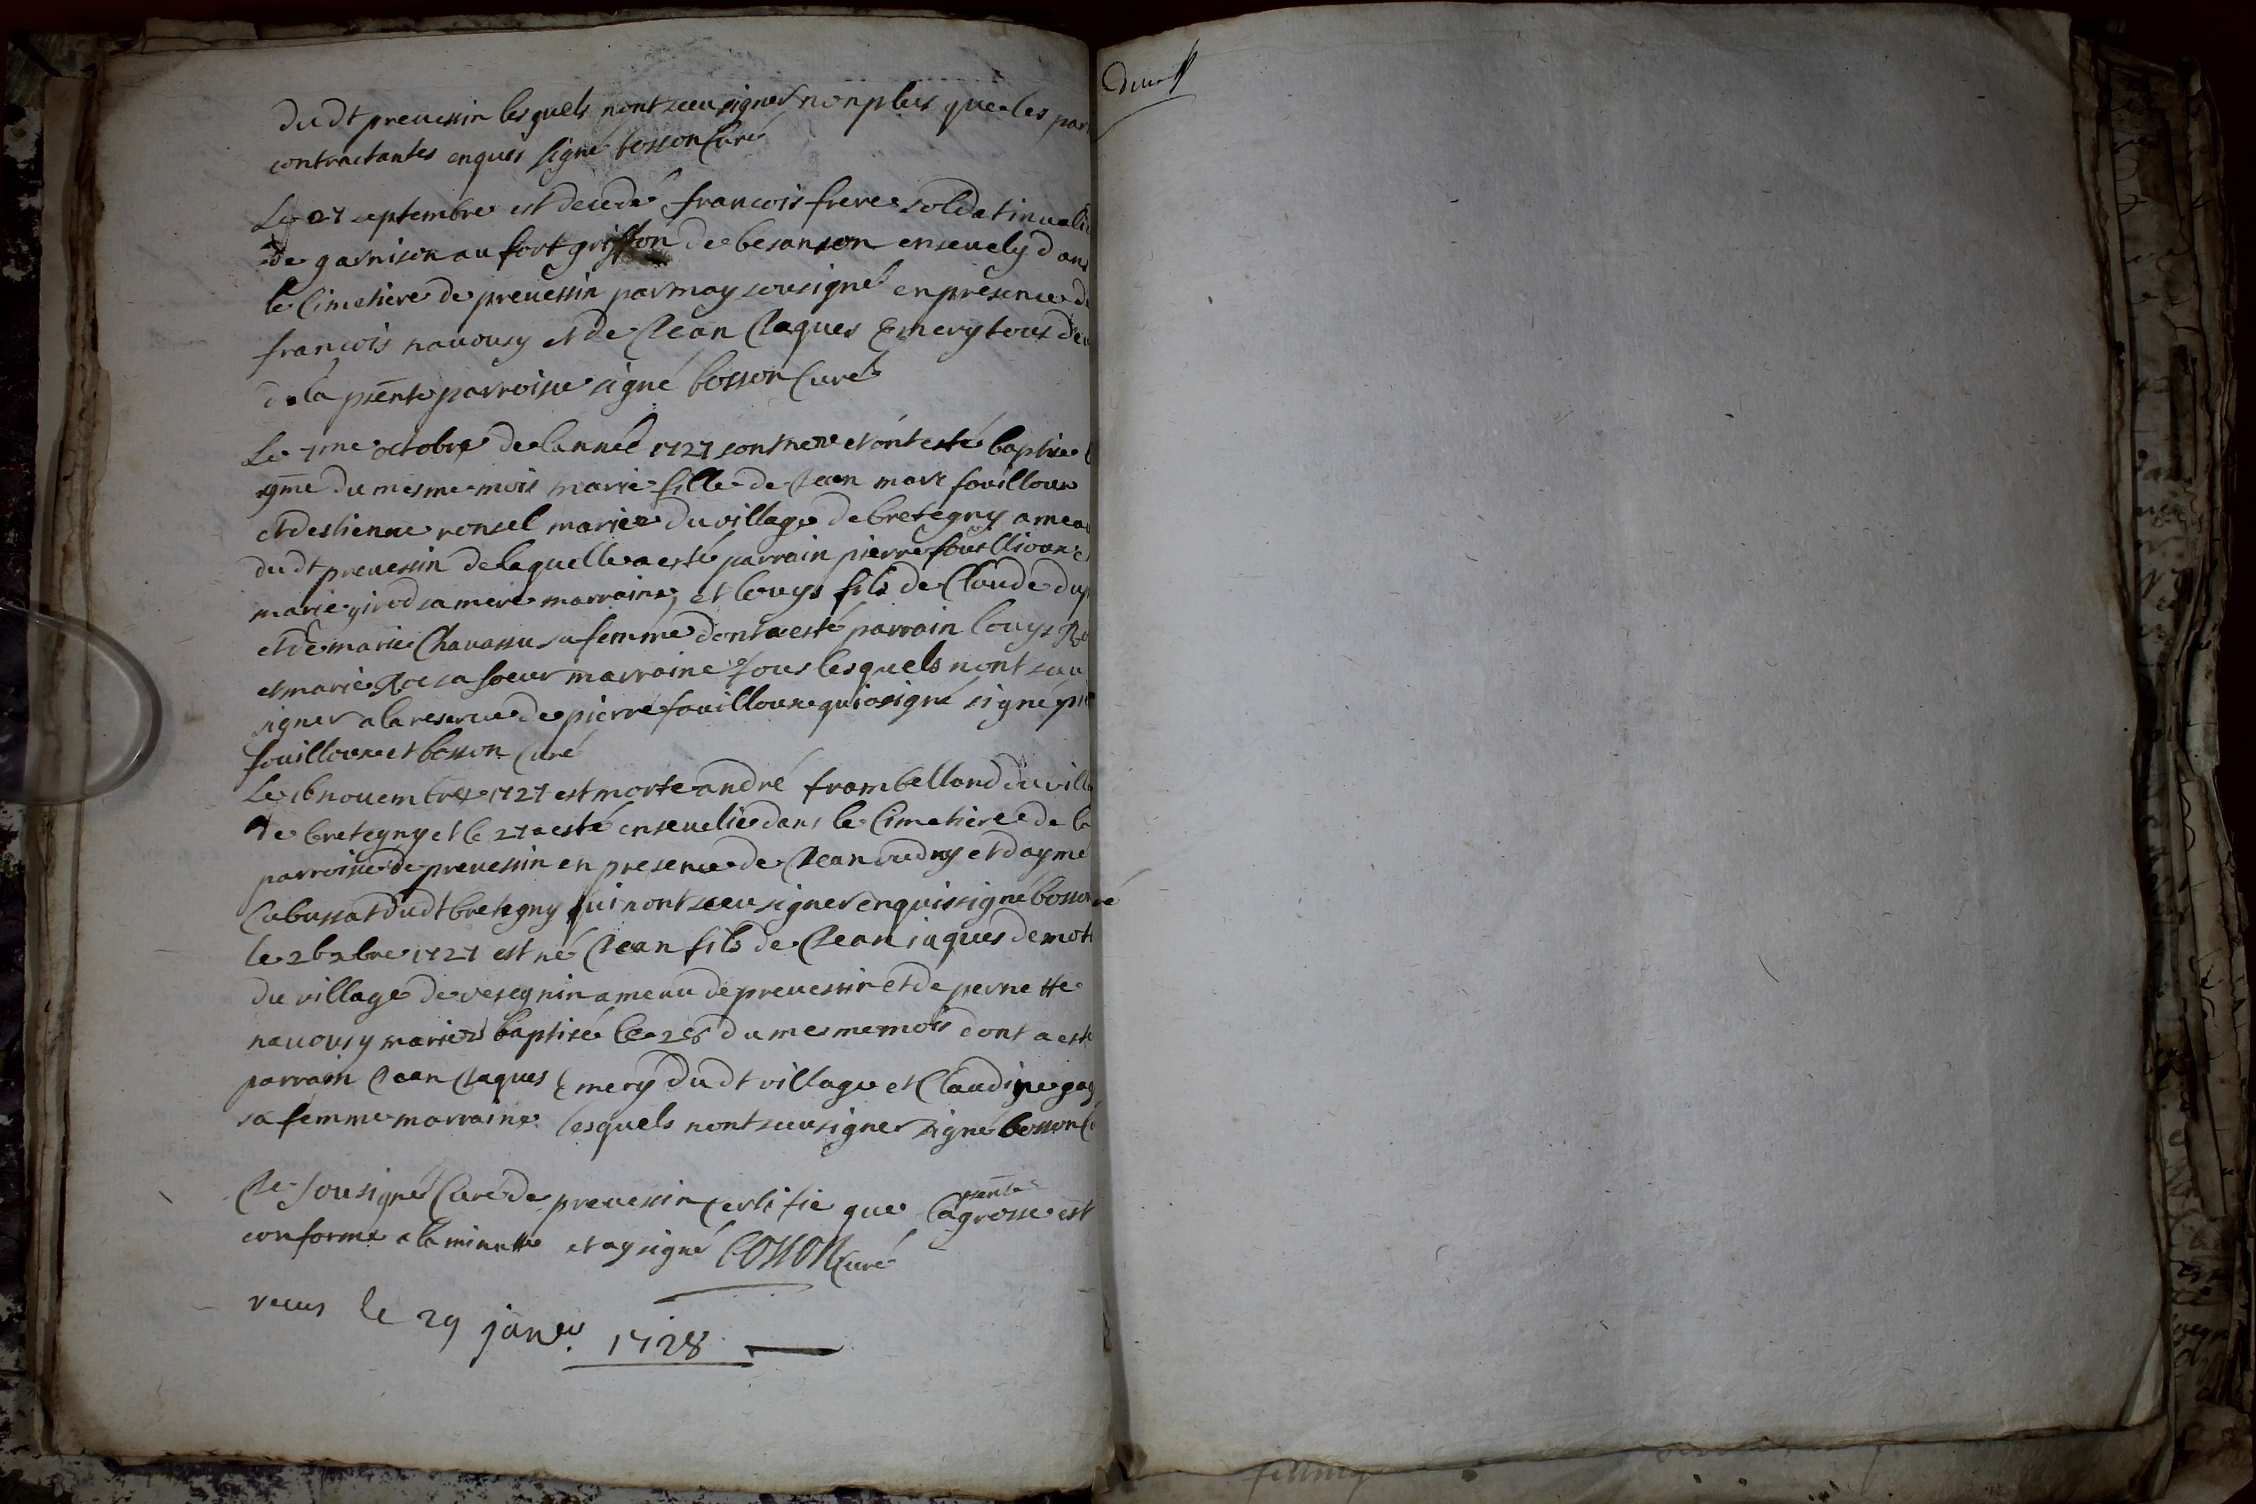 dudt preuessin lesquels nont sceu signer non plus que les par
contractantes enquis signé bosson Curé
Le 27 septembre est decedé francois frere soldat inuali
de garnison au fort griffon de besanson enseuely dans
le Cimetiere de preuessin par moy sousigné en presence de
francois nauousy et de Jean Jaques Emery tous deu
de la pñte parroisse signé bosson Curé
Le 7me octobre de lannée 1727 sont nez et ont esté baptisé
9me du mesme mois marie fille de Jean marc fouilloux
et destienne ronsel mariez du village de bretegny ameau
dudt preuessin de laquelle a esté parrain pierre fouilloux et
marie girod sa mere marraine, et Louys fils de Claude dup
et de marie Chauassu sa femme dont a esté parrain Louys Ro
et marie Roc sa soeur marraine tous lesquels nont sceu
signer a la reserue de pierre fouilloux qui a signé signé pie
fouilloux et bosson Curé
Le 16 nouembre 1727 est morte andré frambelland du villa
de bretegny et le 27 a esté enseuelie dans le Cimetiere de la
parroisse de preuessin en presence de Jean dudry et daymé
Cabussat dudt bretegny qui nont sceu signer enquis signé bosson
le 26 xbre 1727 est né Jean fils de Jean iaques demot
du village de vesegnin ameau de preuessin et de pernette
nauousy mariez baptisé le 28 du mesme mois dont a esté
parrain Jean Jaques Emery dudt village et Claudine gag
sa femme marraine lesquels nont sceu signer signé bosson C
Je sousigné Curé de preuessin Certifie que la pñte grosse est
conforme a la minutte et ay signé bosson Curé
receu le 29 janer. 1728